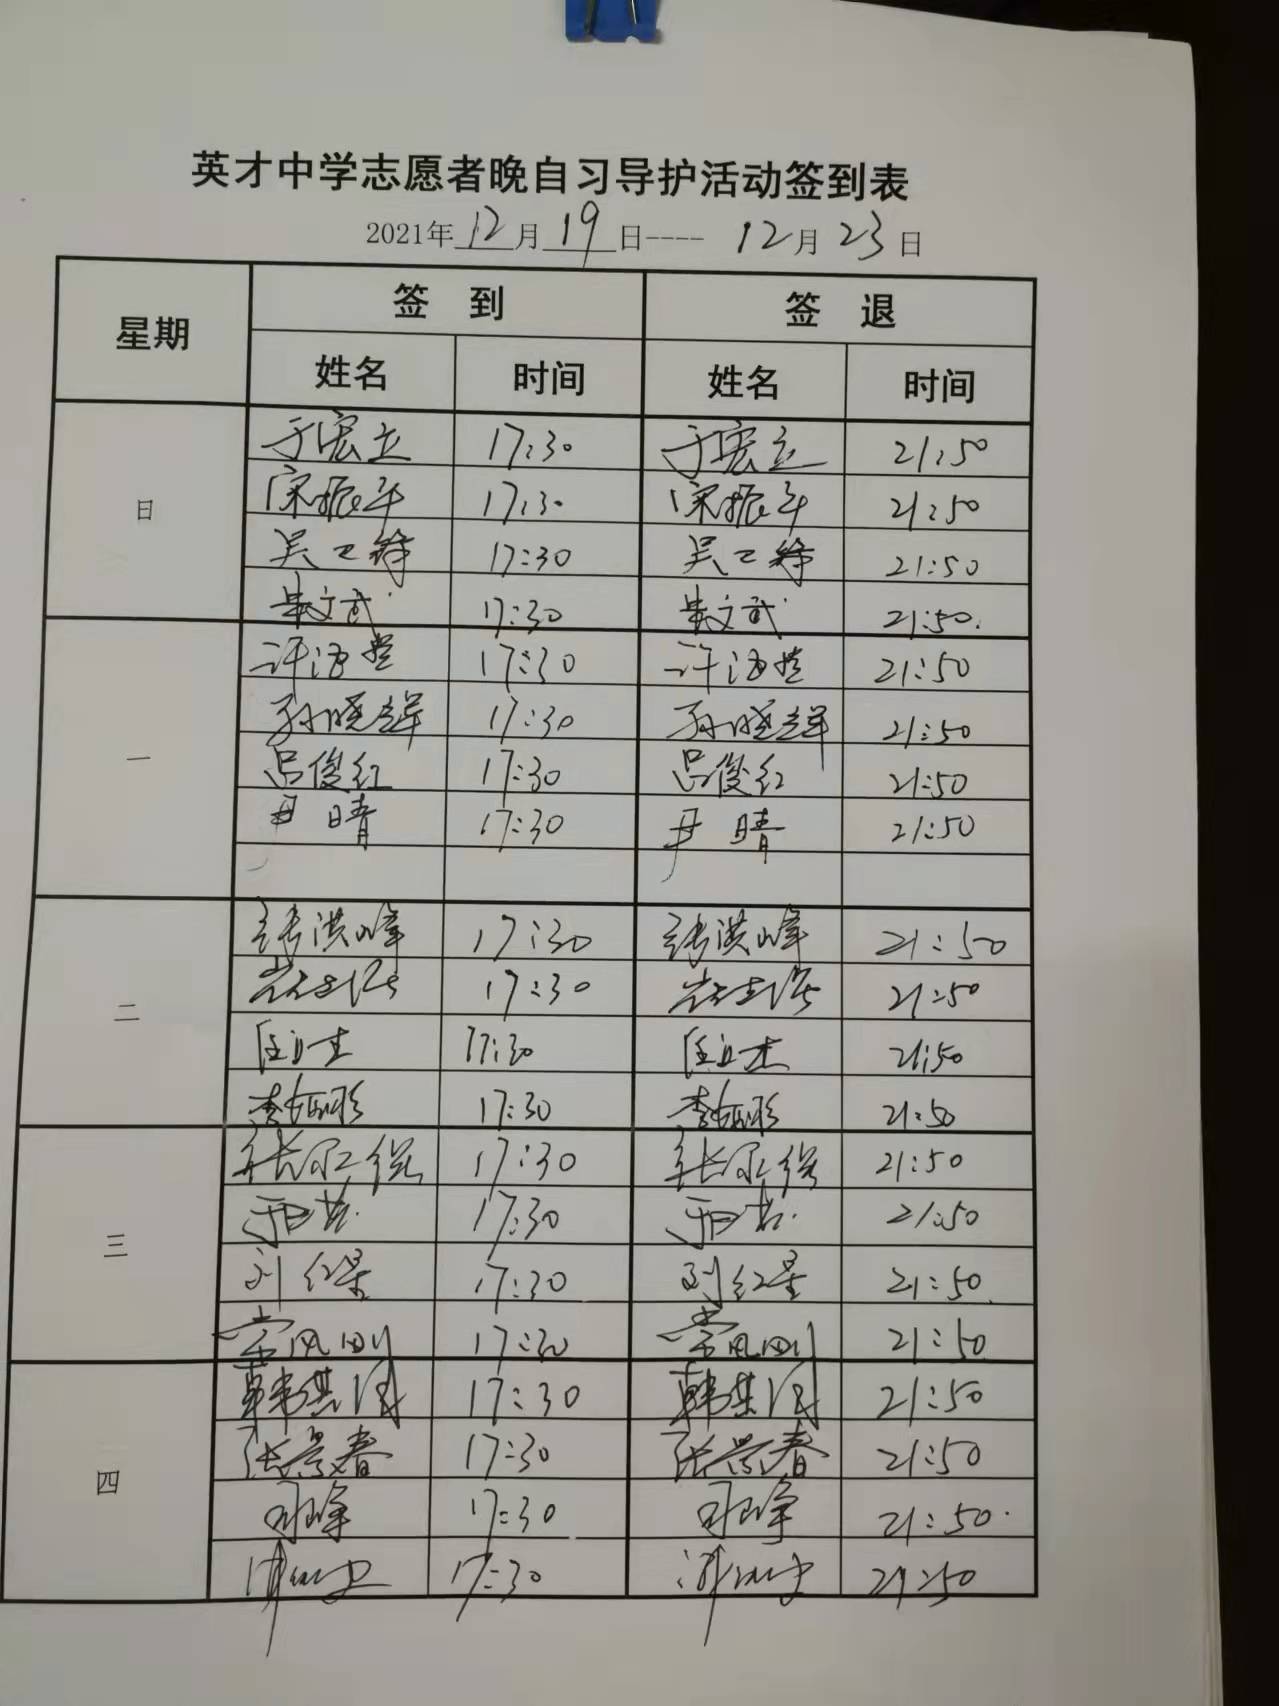 英才中学志愿者晚自习导护活动签到表
2021年12月19日---- 12月23日
星期 签 到 签 退
姓名 时间 姓名 时间
日
于宏立 17:30 于宏立 21:50
宋振华 17:30 宋振华 21:50
吴工锋 17:30 吴工锋 21:50
朱文武 17:30 朱文武 21:50.
一
许 17:30 许 21:50
孙晓群 17:30 孙晓群 21:50
吕俊红 17:30 吕俊红 21:50
尹晴 17:30 尹晴 21:50
二
张洪峰 17:30 张洪峰 21:50
17:30 21:50
17:30 21:50
李 17:30 李 21:50
三
张 17:30 张 21:50
17:30 21:50
刘红星 17:30 刘红星 21:50
17:30 21:50
四
韩其 17:30 韩其 21:50
张景春 17:30 张景春 21:50
17:30 21:50.
17:30 21:50